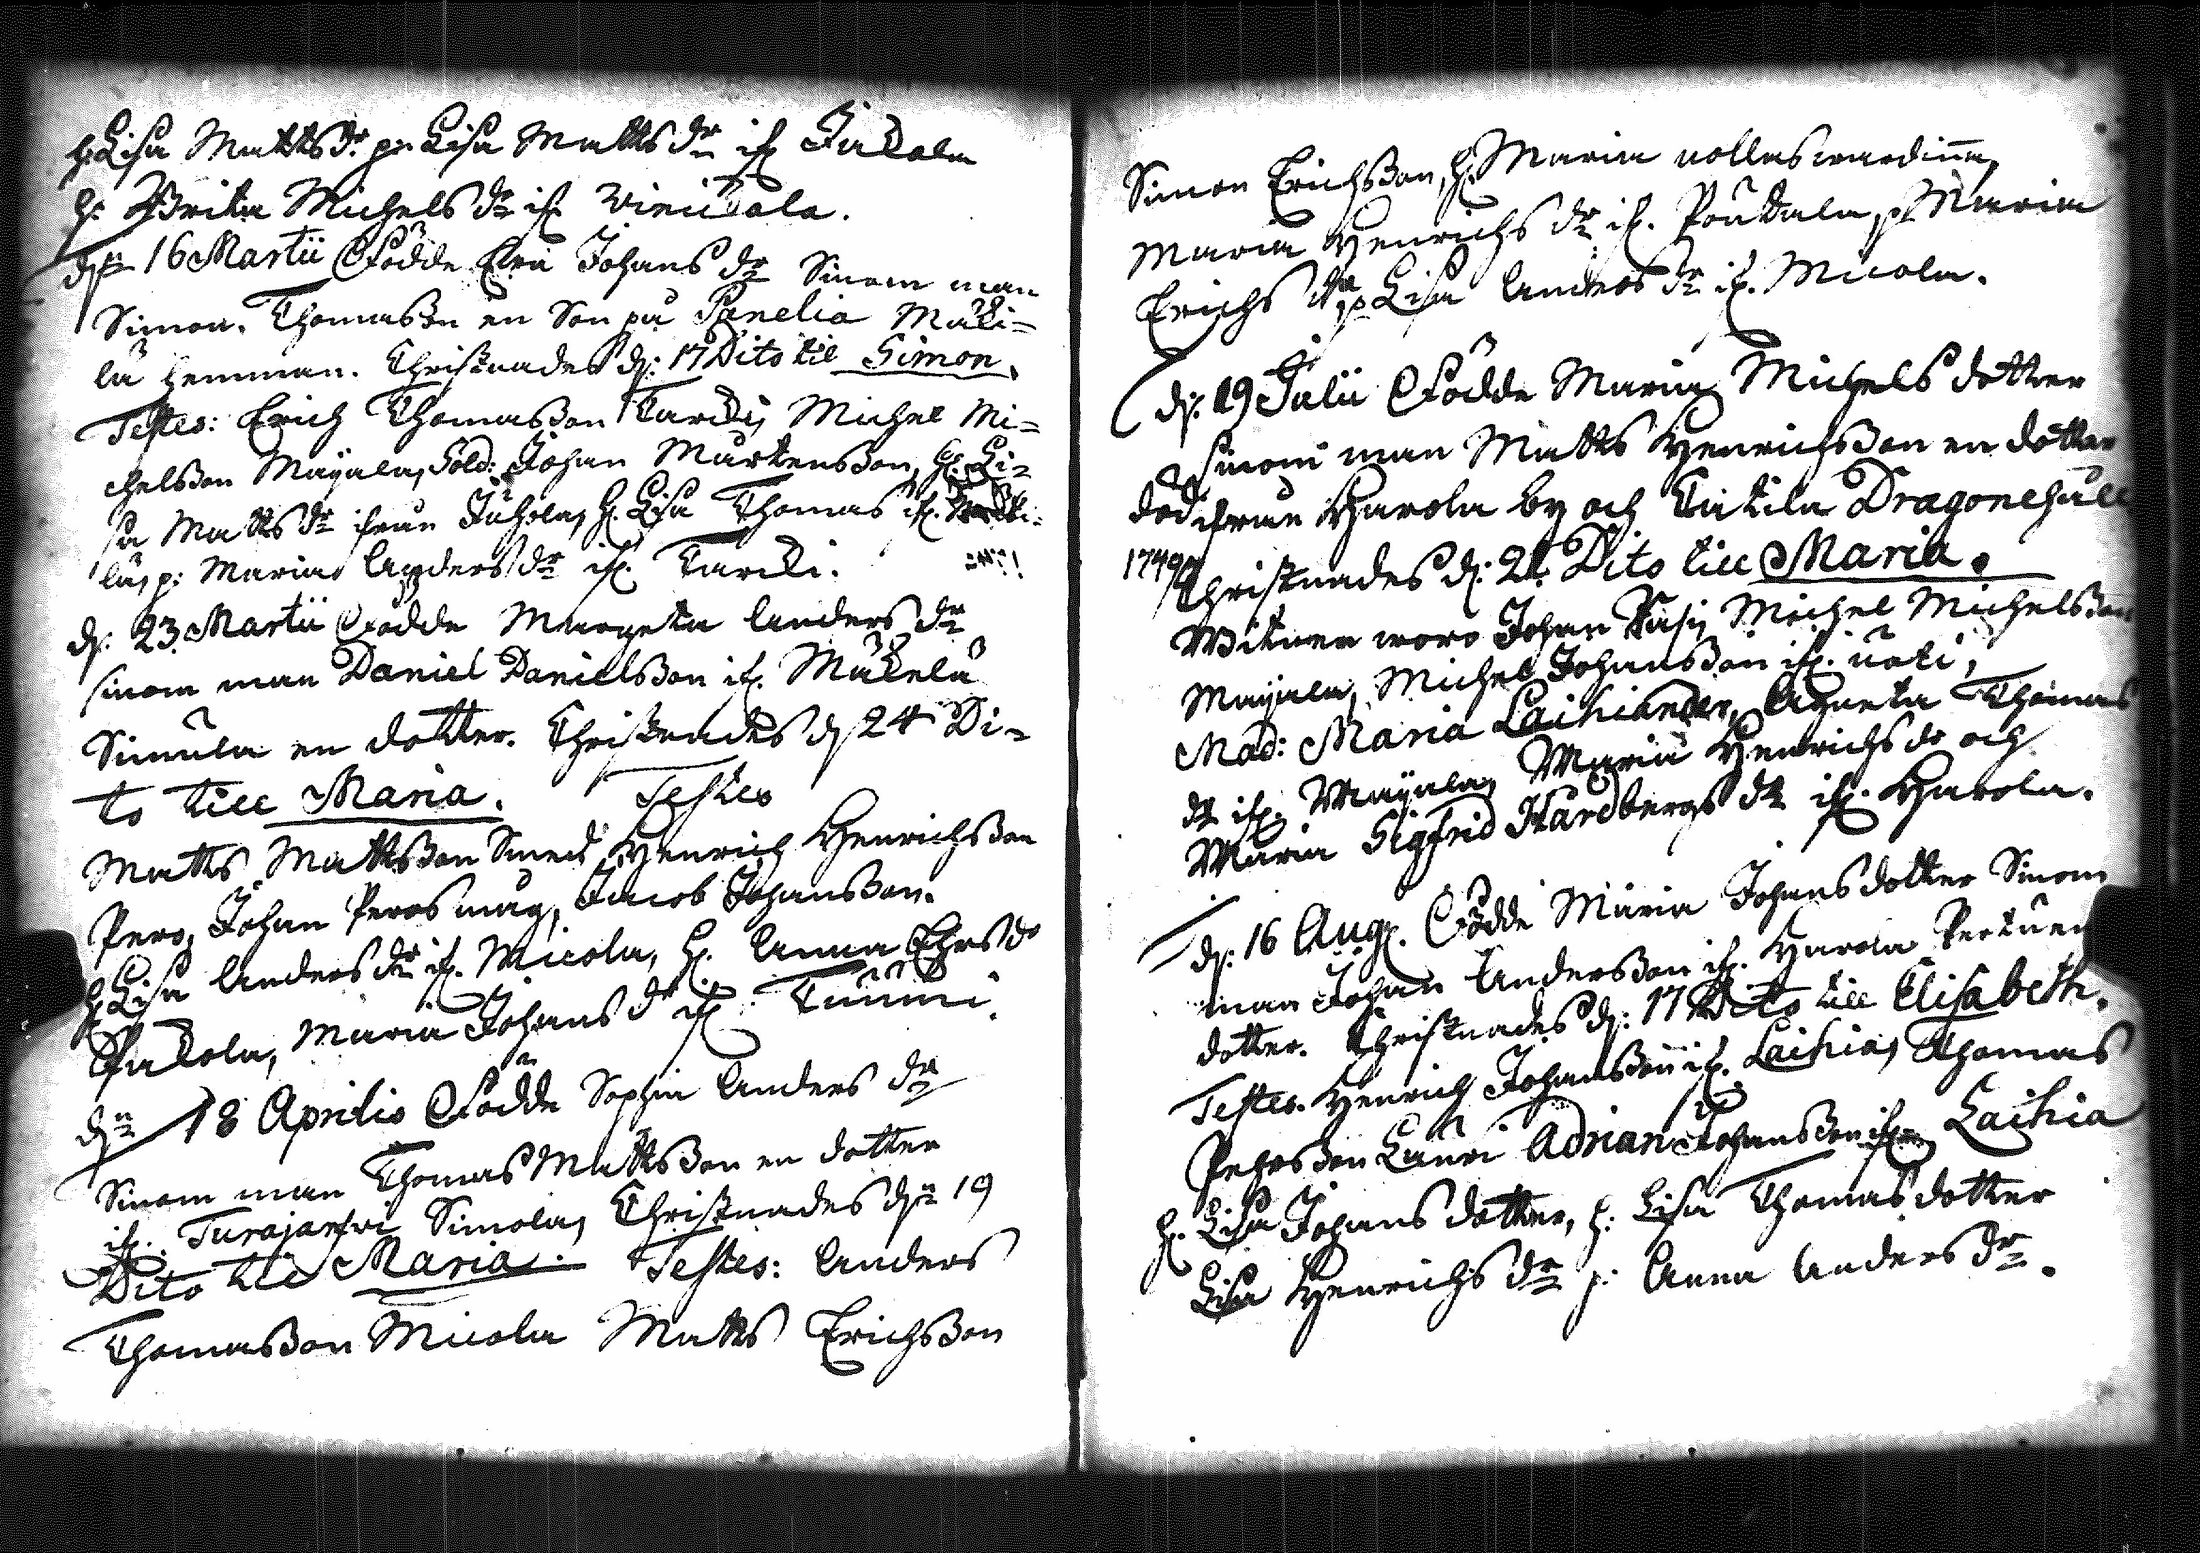 h: Lisa Mattsdr. p: Lisa Matts dr if. Jakola
h: Brita Michels dr if. Vinikala.
dn 16 Martii Födde Eva Johans dr Sinom man
Simon. Thomasson en Son på Panelia Mäki-
lä Hemman. Christnades d: 17 Dito til Simon.
Testes: Erich Thomasson Tarcki, Michel Mi-
chelsson Mayala, Sold: Johan Mårtensson, h: Li-
sa Matts dr ifrån Juhola, h. Lisa Thomas if.
lä, p: Maria Anders dr if. Tarcki.
d: 23 Martii Födde Margeta Anders dr
sinom man Daniel Danielsson if. Mäkelä
Simula en dotter. Christnades d 24 Di-
to till Maria. Testes
Matts Mattsson Smed Henrich Henrichsson
Pero, Johan Peros måg, Jacob Johansson.
h Lisa Anders dr if. Micola, h. Anna Ehrs dr
Pakola, Maria Johans d if. Tuumi.
dn 18 Aprilis Födde Sophia Anders dr
Sinom man Thomas Mattsson en dotter
if. Turajarfvi Simola, Christnades dn 19
Dito till Maria. Testes: Anders
Thomasson Micola Matts Erichsson
Simon Erichsson, h. Maria
Maria Henrichs dr if. Poukala, p Maria
Erichs dr, p Lisa Anders dr if. Micola.
d: 19 Julii Födde Maria Michels dotter
sinom man Matts Henrichsson en dotter
död ifrån Harola by och Tutila Dragonehåll
1749 Christnades d: 21. Dito till Maria.
Witnen woro Johan Vasi, Michel Michelsson
Mayala, Michel Johansson if. Uoti,
Mad: Maria Laihiander, Agneta Thomas
dr if. Mayala, Maria Henrichs dr och
Maria Sigfrid Hårdbergs dr if. Harola.
d: 16 Aug. Födde Maria Johans dotter Sinom
man Johan Andersson if. Harola Pertu en
dotter. Christnades d: 17 Dito till Elisabeth.
Testes. Henrich Johansson if. Laihia, Thomas
Pehrsson Lauri Adrian Johansson if. Laihia
h. Lisa Johans dotter, h: Lisa Thomas dotter
Lisa Henrichs dr p: Anna Anders dr.